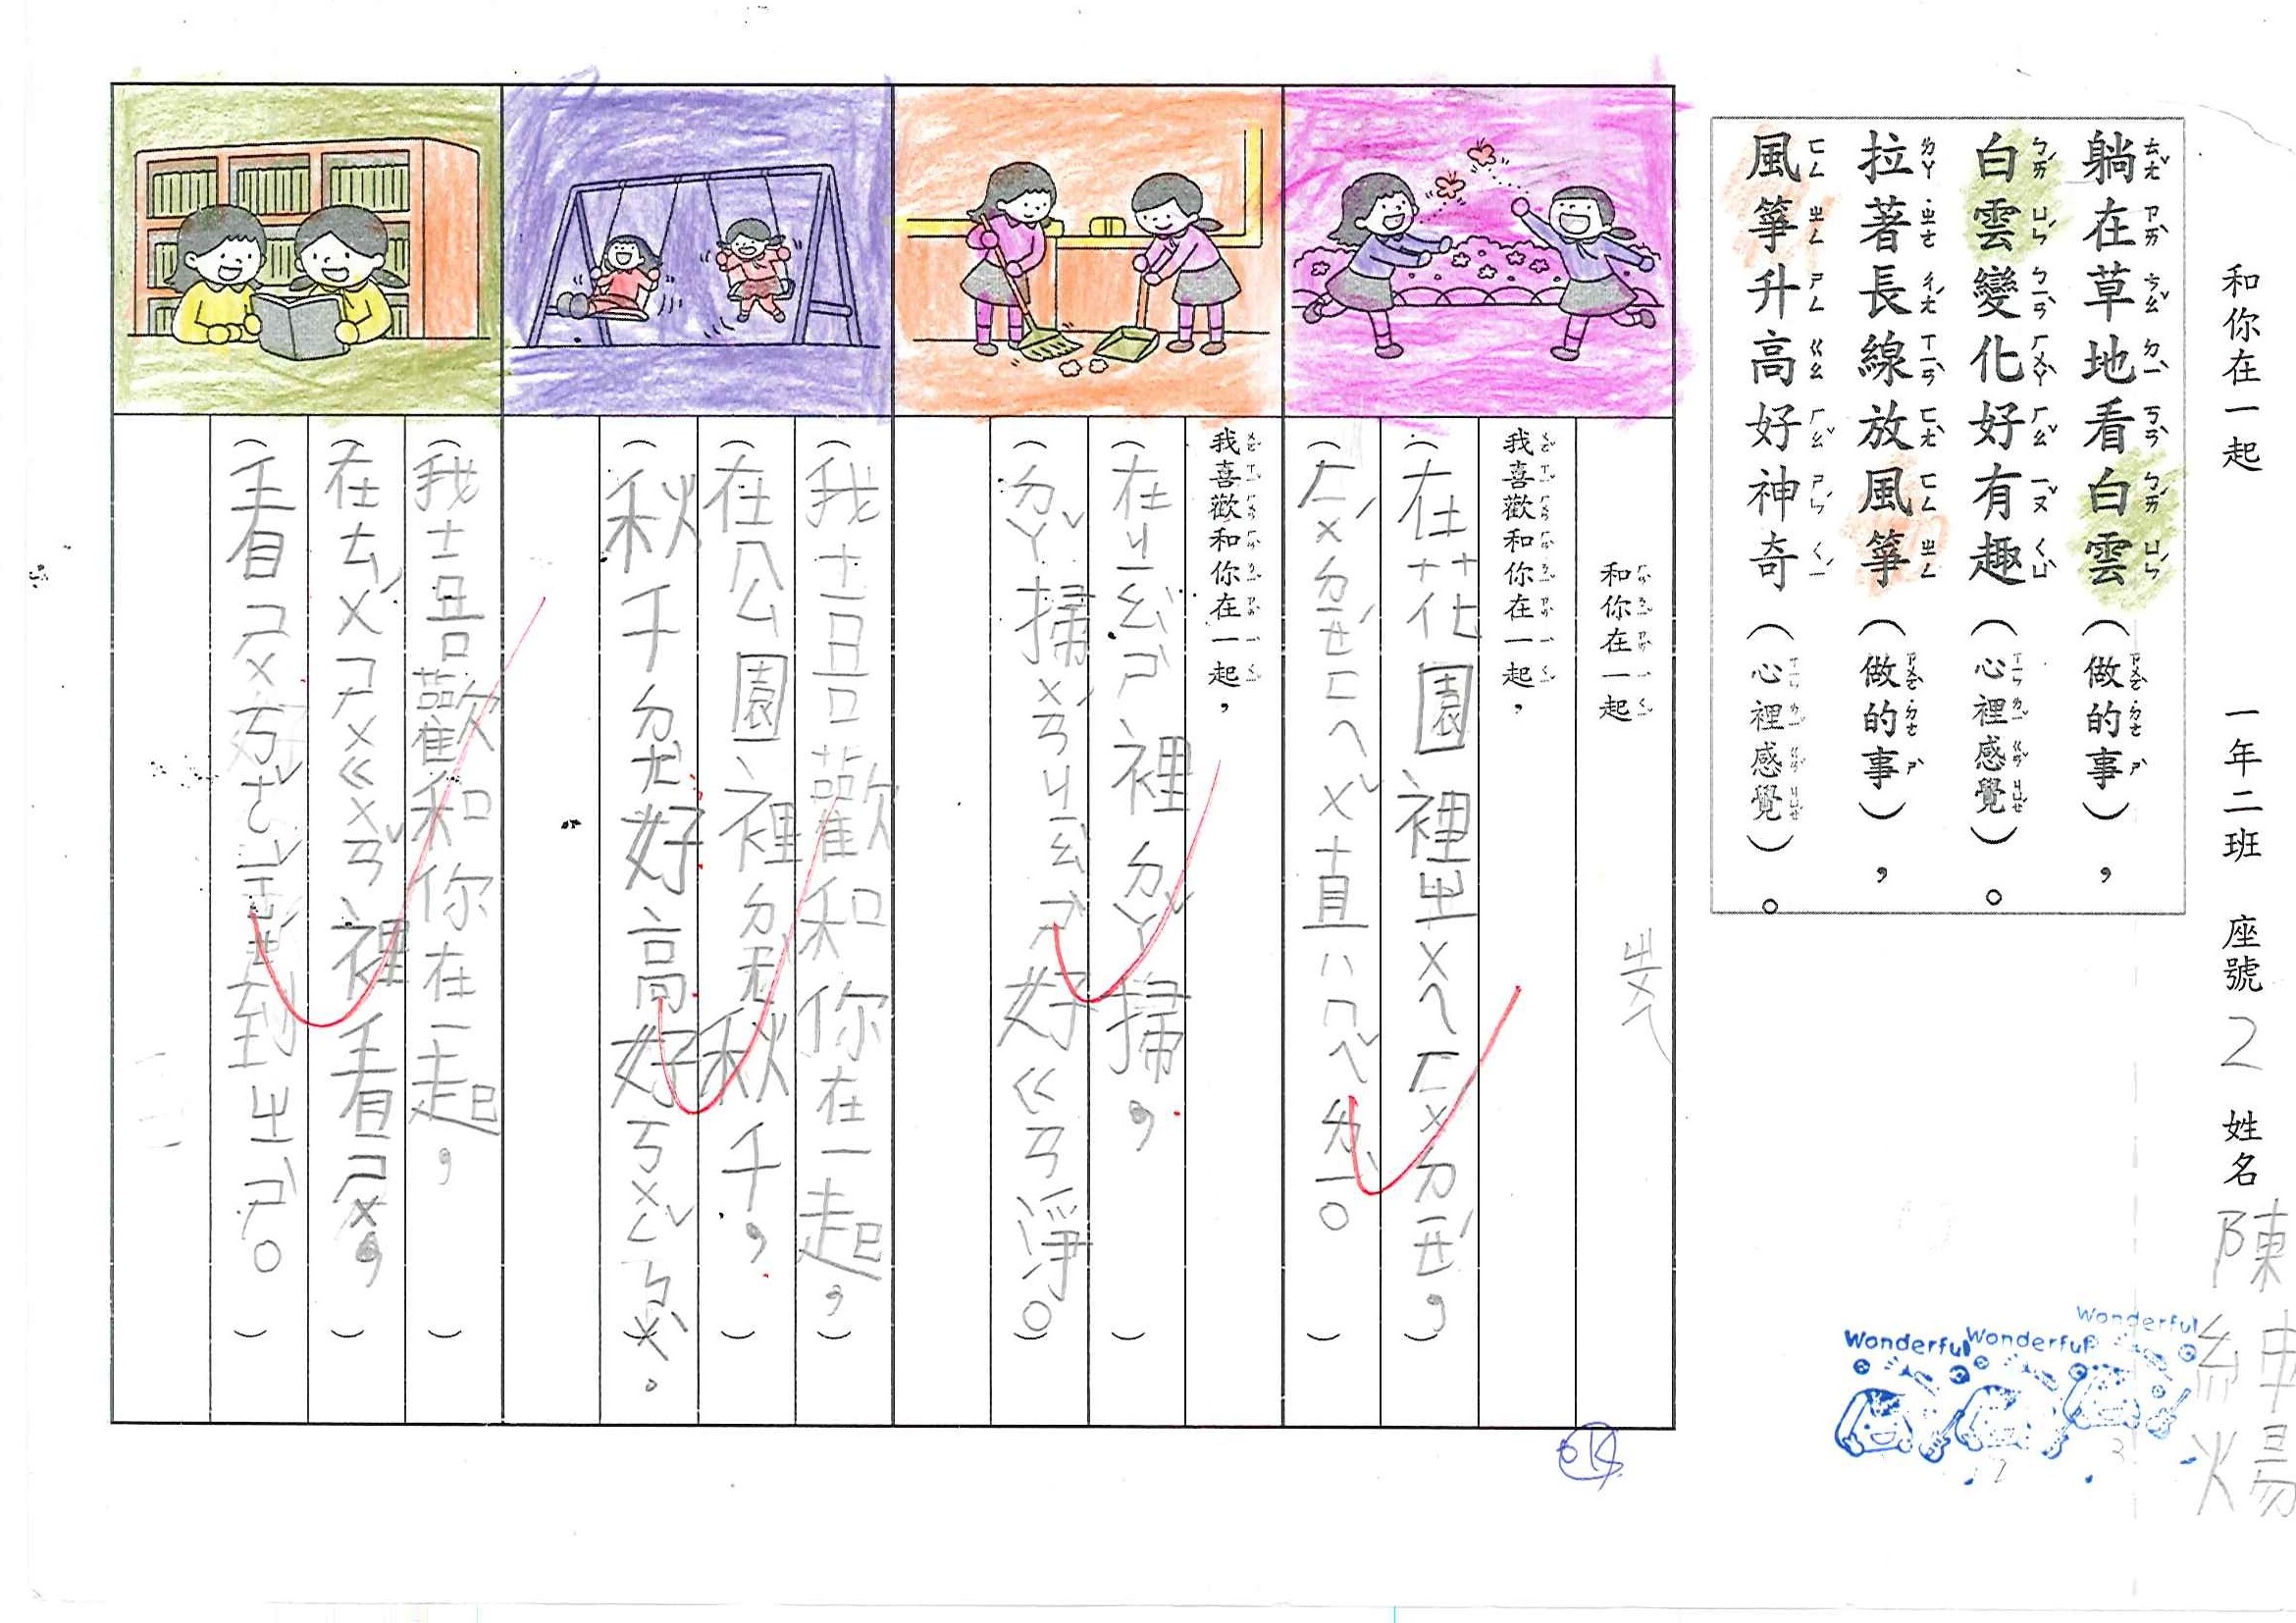 和你在一起 一年二班 座號 2 姓名 陳紳煬
躺在草地看白雲(做的事),
白雲變化好有趣(心裡感覺)。
拉著長線放風箏(做的事),
風箏升高好神奇(心裡感覺)。
和你在一起
我喜歡和你在一起,
(在花園裡ㄓㄨㄟㄏㄨㄉㄧㄝˊ,)
(ㄏㄨˊㄉㄧㄝˊㄈㄟㄨˇ真ㄇㄟˇㄌㄧˋ。)
我喜歡和你在一起,
(在ㄐㄧㄠˋㄕˋ裡ㄉㄚˇ掃,)
(ㄉㄚˇ掃ㄨㄢˊㄐㄧㄠˋㄕˋ好ㄍㄢ淨。)
(我喜歡和你在一起,)
(在公園裡ㄉㄤˋ秋千,)
(秋千ㄉㄤˋ好高好ㄎㄨㄥˇㄅㄨˋ。)
(我喜歡和你在一起,)
(在ㄊㄨˊㄕㄨㄍㄨㄢˇ裡看ㄕㄨ,)
(看ㄕㄨ好到ㄓㄕˋ。)
Wonderful Wonderful Wonderful
OK